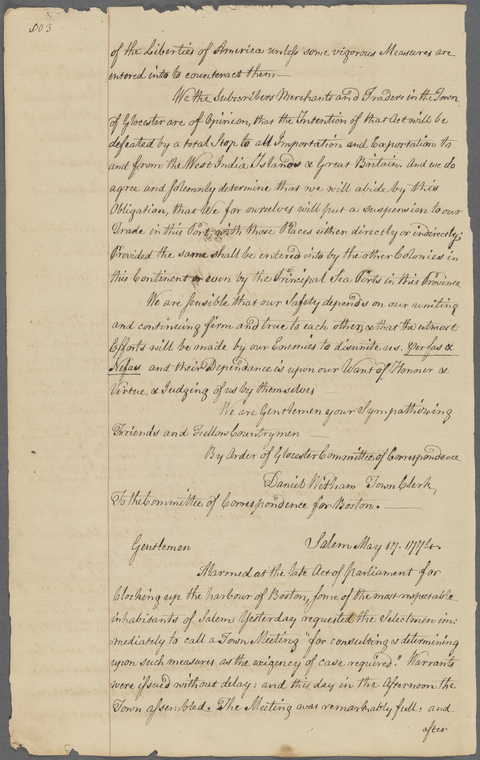 503
of the Liberties of America unless some vigorous Measures are
entered into to counteract them—
We the Subscribers Merchants and Traders in the Town
of Glocester are of Opinion, that the Intention of that Act will be
defeated by a total Stop to all Importation and Exportation to
and from the West India Islands & Great Britain. And we do
agree and solemnly determine that we will abide by this
Obligation, that We for ourselves will put a suspension to our
Trade in this Port, with those Places either directly or indirectly;
Provided the same shall be entered into by the other Colonies in
this Continent or even by the Principal Sea Ports in this Province.
We are sensible that our Safety depends on our uniting
and continuing firm and true to each other, & that the utmost
Efforts will be made by our Enemies to disunite us. Per fas &
Nefas and their Dependance is upon our Want of Honour &
Virtue, & Judging of us by themselves
We are Gentlemen your Sympathizing
Friends and Fellow Countrymen —
By Order of Glocester Committee of Correspondence
Daniel Witham Town Clerk,
To the Committee of Correspondence for Boston. —
Gentlemen Salem May 17. 1774.
Alarmed at the late Act of Parliament for
Blocking up the harbour of Boston, some of the most respectable
inhabitants of Salem Yesterday requested the Selectmen im:
mediately to call a Town Meeting "for consulting & determining
upon such measures as the exigency of case required." Warrants
were issued without delay: and this day in the Afternoon the
Town assembled. The Meeting was remarkably full; and
after